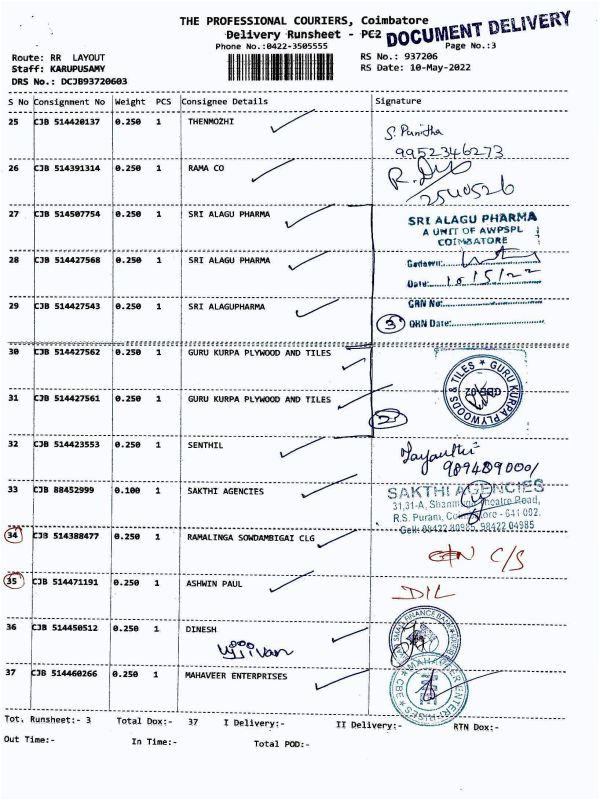 THE PROFESSIONAL COURIERS, Coimbatore
DOCUMENT DELIVERY
Delivery Runsheet - PC2
Phone No.:0422-3505555
Page No.:3
Route: RR LAYOUT
RS No.: 937206
Staff: KARUPUSAMY
RS Date: 10-May-2022
DRS No.: DCJB93720603
S No Consignment No Weight PCS Consignee Details Signature
25 CJB 514420137 0.250 1 THENMOZHI
S. Punitha
9952346273
26 CJB 514391314 0.250 1 RAMA CO
2540526
27 CJB 514507754 0.250 1 SRI ALAGU PHARMA
SRI ALAGU PHARMA
A UNIT OF AWPSPL
COIMBATORE
28 CJB 514427568 0.250 1 SRI ALAGU PHARMA
Godown:
Date: 10/5/22
29 CJB 514427543 0.250 1 SRI ALAGUPHARMA
GRN No:
3 GRN Date:
30 CJB 514427562 0.250 1 GURU KURPA PLYWOOD AND TILES
GURU KURPA PLYWOODS & TILES
31 CJB 514427561 0.250 1 GURU KURPA PLYWOOD AND TILES
2
32 CJB 514423553 0.250 1 SENTHIL
Jayanthi
9894890001
33 CJB 88452999 0.100 1 SAKTHI AGENCIES
SAKTHI AGENCIES
31,31-A, Shanmuga Theatre Road,
R.S. Puram, Coimbatore - 641 002.
Cell: 98422 80985, 98422 04985
34 CJB 514388477 0.250 1 RAMALINGA SOWDAMBIGAI CLG
C/S
35 CJB 514471191 0.250 1 ASHWIN PAUL
D/L
36 CJB 514450512 0.250 1 DINESH
ujjivan
SMALL FINANCE BANK
37 CJB 514460266 0.250 1 MAHAVEER ENTERPRISES
MAHAVEER ENTERPRISES CBE
Tot. Runsheet:- 3 Total Dox:- 37 I Delivery:- II Delivery:- RTN Dox:-
Out Time:- In Time:- Total POD:-